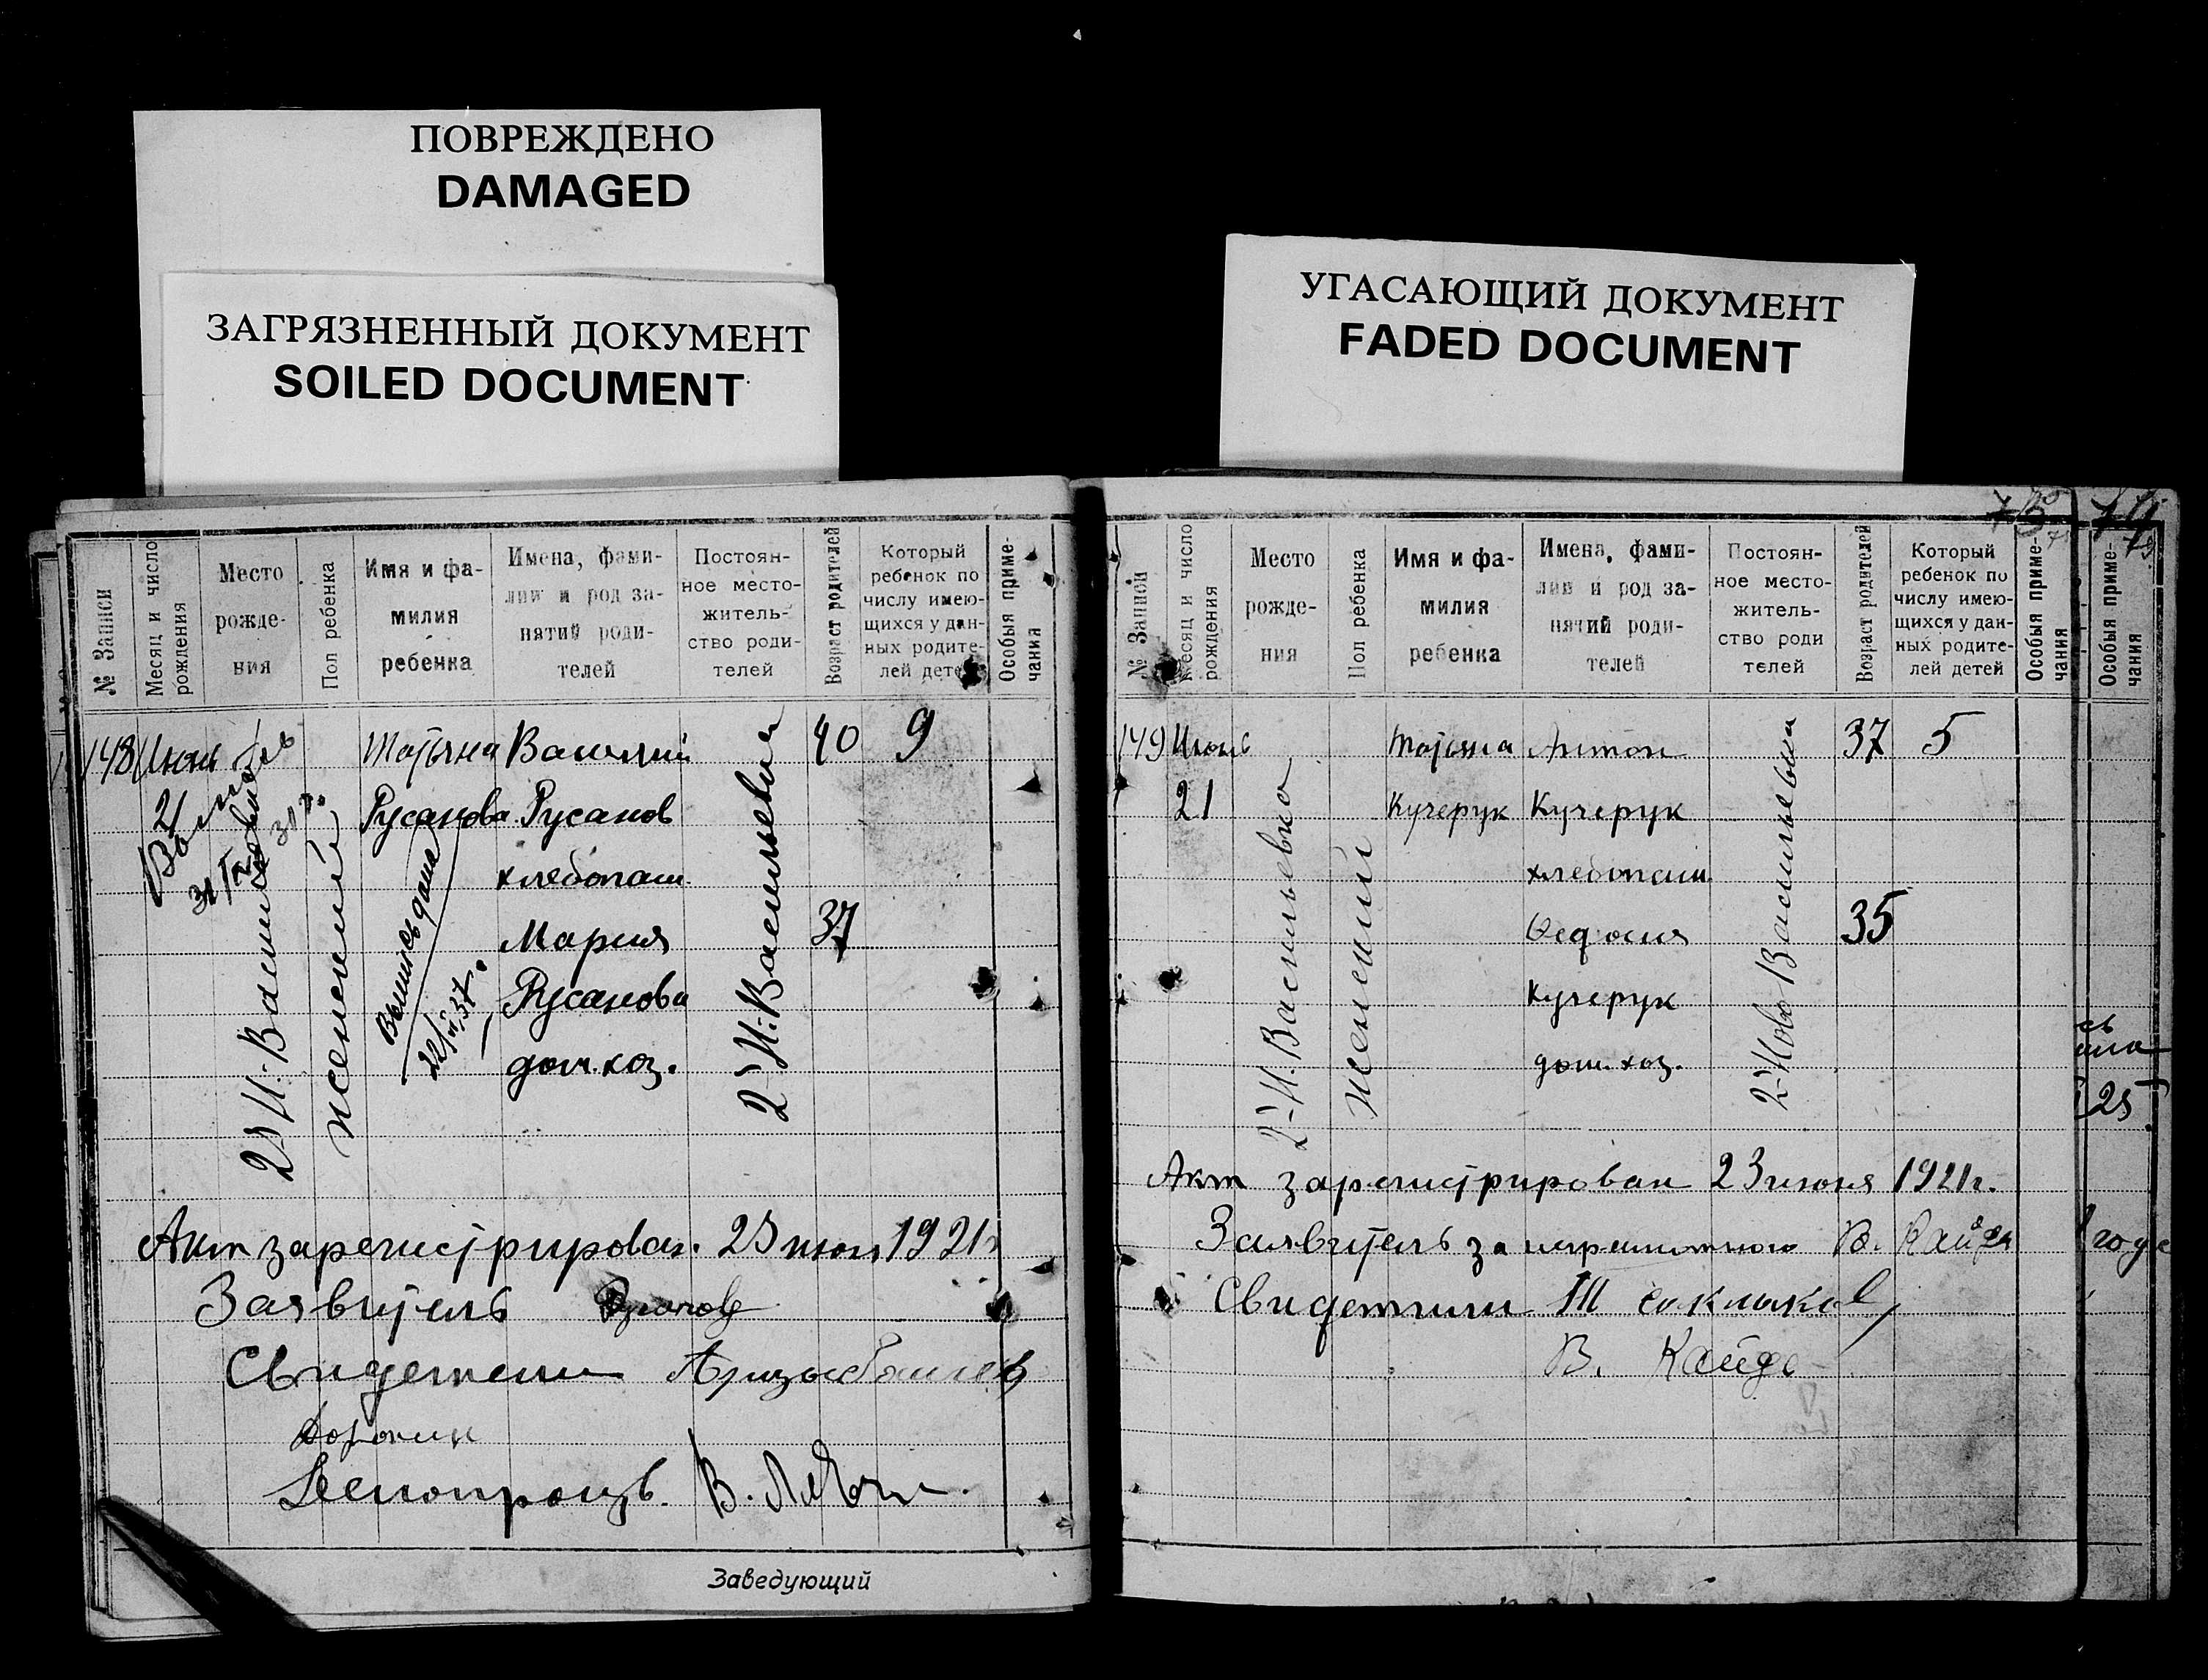 ПОВРЕЖДЕНО
DAMAGED
ЗАГРЯЗНЕННЫЙ ДОКУМЕНТ
SOILED DOCUMENT
УГАСАЮЩИЙ ДОКУМЕНТ
FADED DOCUMENT
№ Записи
Месяц и число рождения
Место рожде-
ния
Пол ребенка
Имя и фа-
милия
ребенка
Имена, фами-
лии и род за-
нятий роди-
телей
Постоян-
ное место-
житель-
ство роди-
телей
Возраст родителей
Который
ребенок по
числу имею-
щихся у дан-
ных родите-
лей детей
Особыя приме-
чания
148 Июнь Татьяна Василий 40 9
21 Русанова Русанов
хлебопаш.
Мария 37
Русанова
дом. хоз.
2-Н. Васильевка
женский
Выпись дана
2-Н. Васильевка
Акт зарегистрирован. 23 июня 1921 г
Заявитель Русанов
Свидетели
Заведующий
№ Записи
Месяц и число
рождения
Место
рожде-
ния
Пол ребенка
Имя и фа-
милия
ребенка
Имена, фами-
лии и род за-
нятий роди-
телей
Постоян-
ное место-
житель-
ство роди
телей
Возраст родителей
Который
ребенок по
числу имею-
щихся у дан-
ных родите-
лей детей
Особыя приме-
чания
Особыя приме-
чания
149 Июнь Татьяна Антон 37 5
21 Кучерук Кучерук
хлебопаш
Федосия 35
Кучерук
дом. хоз.
2-Н. Васильевка
женский
2-Ново Васильевка
25
Акт зарегистрирован 23 июня 1921 г.
Заявитель за неграмотного В. Кайда
Свидетели
В. Кайда